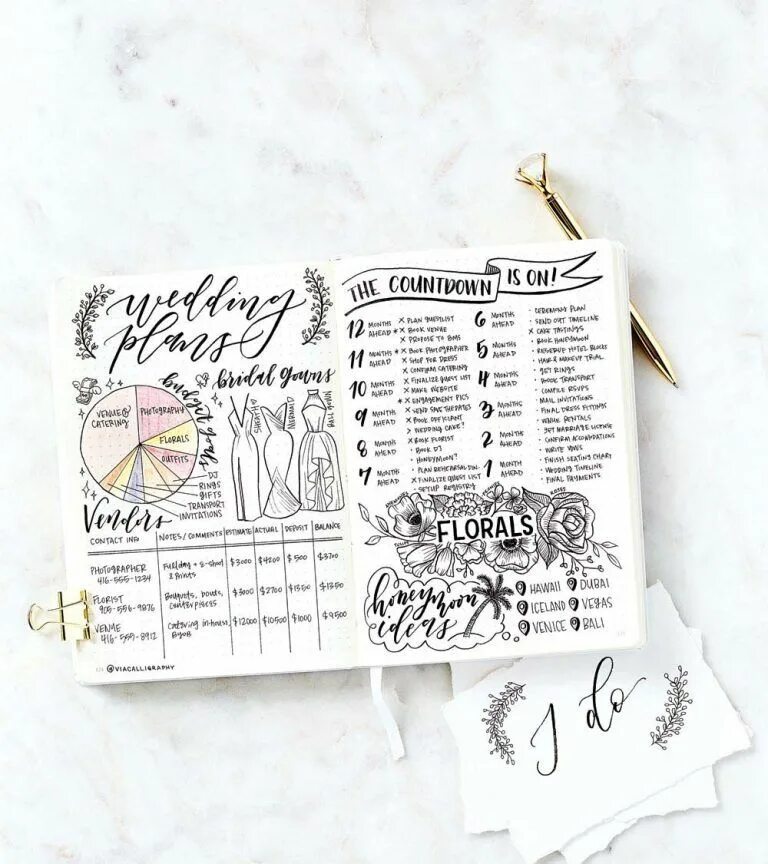 wedding
plans
budget
bridal gowns
VENUE &
CATERING
PHOTOGRAPHY
FLORALS
OUTFITS
DJ
RINGS
GIFTS
TRANSPORT
INVITATIONS
SHEATH
MERMAID
BALL GOWN
Vendors
CONTACT INFO NOTES / COMMENTS ESTIMATE ACTUAL DEPOSIT BALANCE
PHOTOGRAPHER Full day + e-shoot $3000 $4200 $500 $3700
416-555-1234 & Prints
FLORIST Bouquets, bouts, $3000 $2700 $1350 $1350
905-556-9876 centerpieces
VENUE Catering in-house, $12000 $10500 $1000 $9500
416-555-8912
@VIACALLIGRAPHY
THE COUNTDOWN IS ON!
12 MONTHS AHEAD
X PLAN GUESTLIST
* X BOOK VENUE
X PROPOSE TO BMS
11 MONTHS AHEAD
* X BOOK PHOTOGRAPHER
X SHOP FOR DRESS
X CONFIRM CATERING
10 MONTHS AHEAD
X FINALIZE GUEST LIST
X MAKE WEBSITE
* X ENGAGEMENT PICS
9 MONTHS AHEAD
X SEND SAVE THE DATES
X BOOK OFFICIANT
• WEDDING CAKE?
8 MONTHS AHEAD
X BOOK FLORIST
• BOOK DJ
• HONEYMOON?
7 MONTHS AHEAD
• PLAN REHEARSAL DIN.
X FINALIZE GUEST LIST
• SETUP REGISTRY
6 MONTHS AHEAD
• CEREMONY PLAN
• SEND OUT TIMELINE
X CAKE TASTINGS
5 MONTHS AHEAD
• BOOK HONEYMOON
• RESERVE HOTEL BLOCKS
• HAIR & MAKEUP TRIAL
4 MONTHS AHEAD
• GET RINGS
• BOOK TRANSPORT
• COMPILE RSVPS
3 MONTHS AHEAD
• MAIL INVITATIONS
• FINAL DRESS FITTINGS
• VENUE RENTALS
2 MONTHS AHEAD
• GET MARRIAGE LICENSE
• CONFIRM ACCOMODATIONS
• WRITE VOWS
1 MONTH AHEAD
• FINISH SEATING CHART
• WEDDING TIMELINE
• FINAL PAYMENTS
FLORALS
honeymoon
ideas
HAWAII DUBAI
ICELAND VEGAS
VENICE BALI
I do